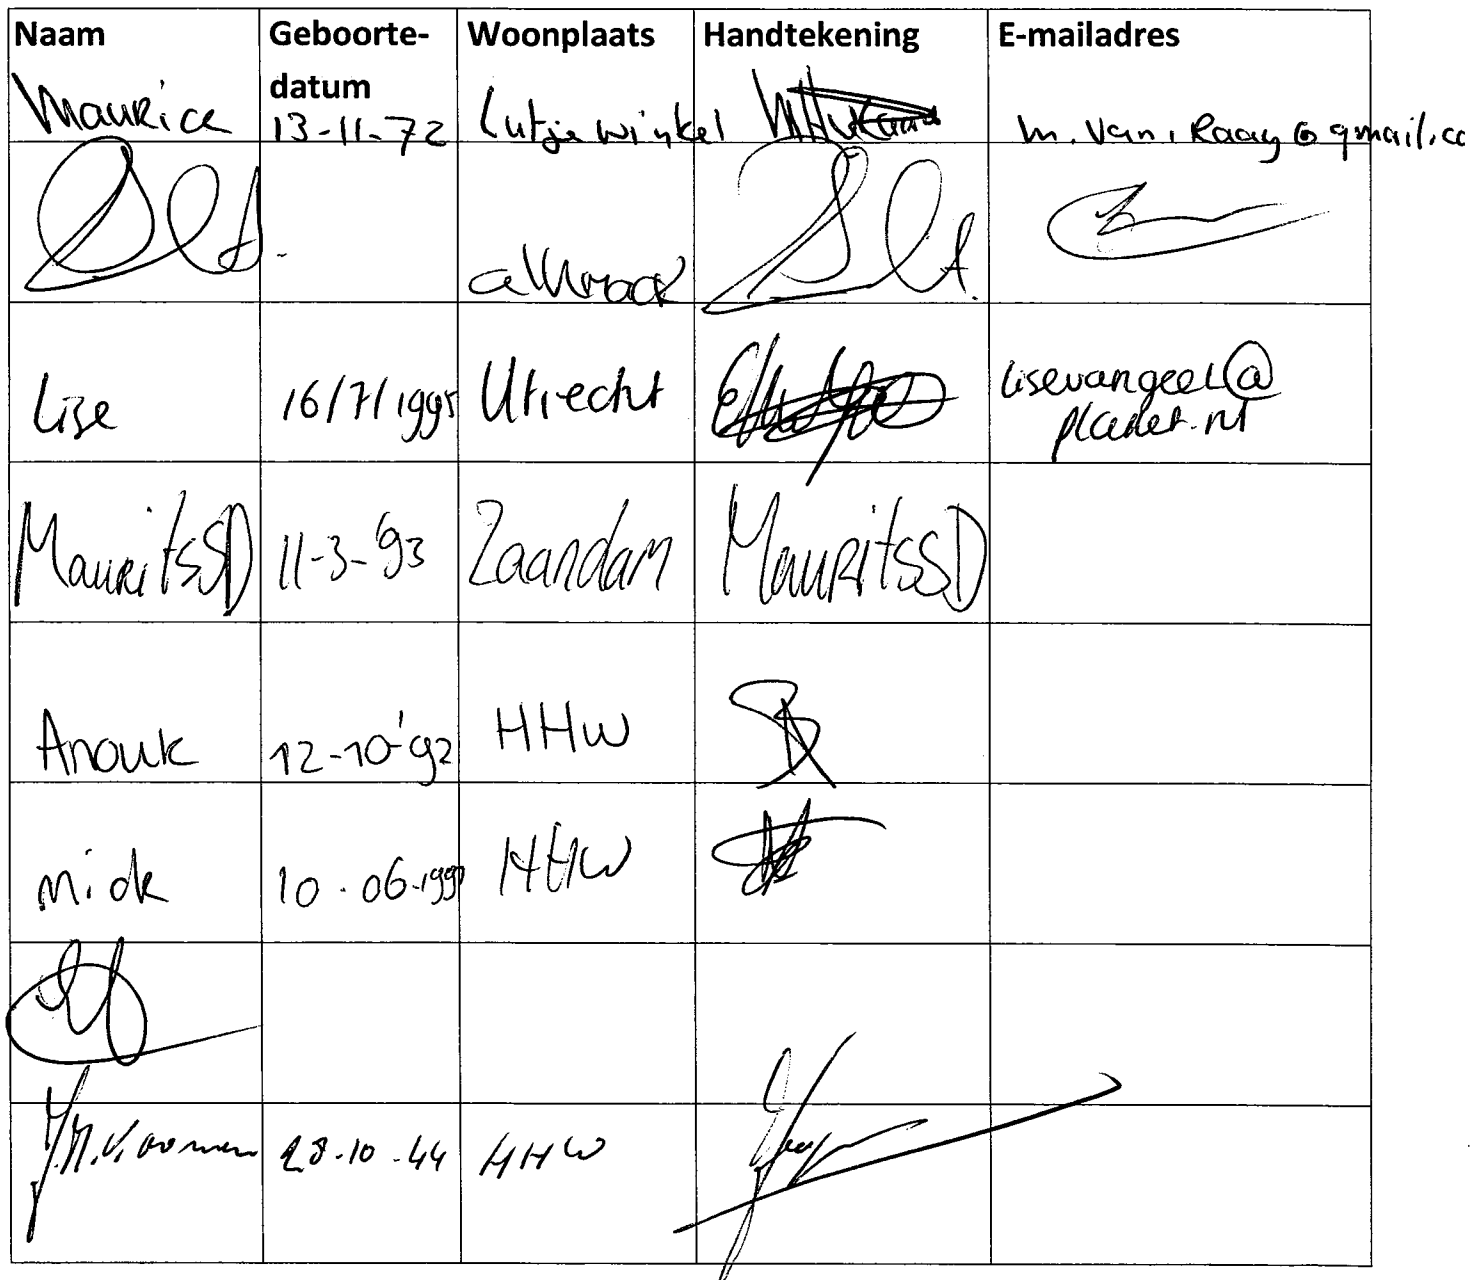 Naam Geboorte- Woonplaats Handtekening E-mailadres
datum
Maurice 13-11-72 Lutjewinkel m.van.Raay@gmail.co
alkmaar
Lise 16/7/1995 Utrecht lisevangeel@
planet.nl
MauritsSD 11-3-'93 Zaandam MauritsSD
Anouk 12-10-'92 HHW
nick 10-06-199 HHW
28-10-44 HHW